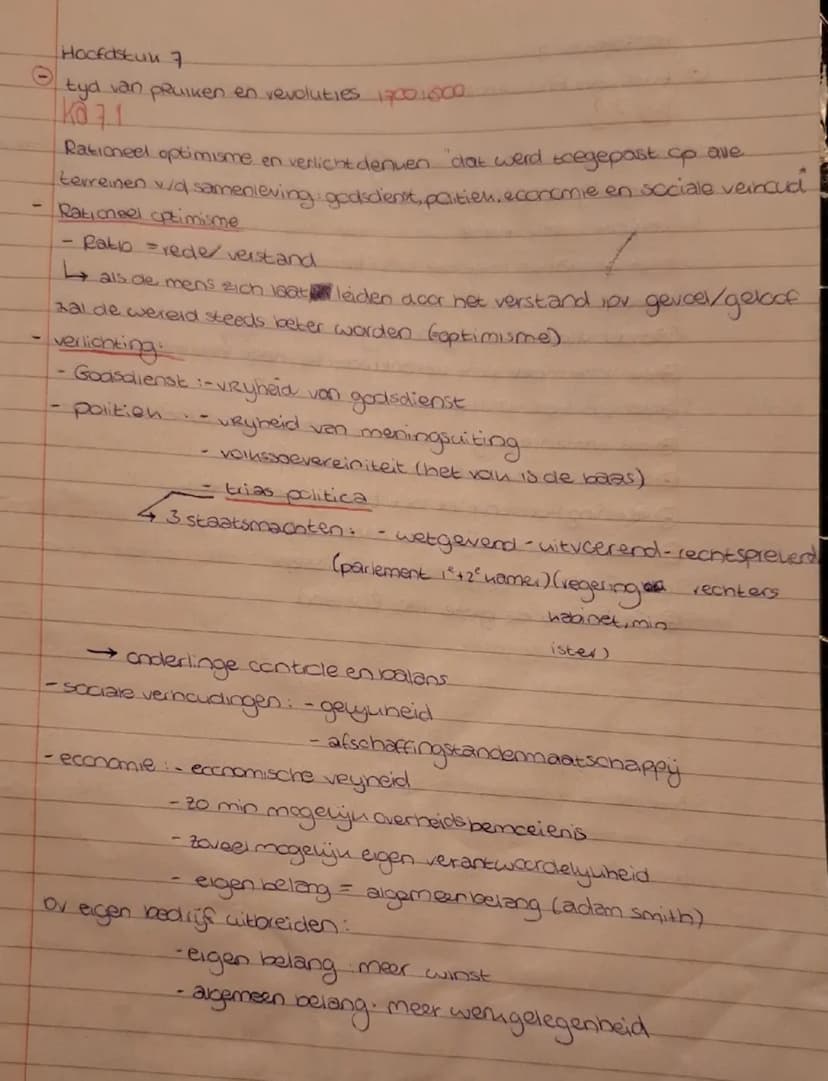 Hoofdstuk 7
tijd van pruiken en revoluties 1700-1800
KA 7.1
Rationeel optimisme en verlicht denken dat werd toegepast op alle
terreinen v/d samenleving: godsdienst, politiek, economie en sociale verhoud
- Rationeel optimisme
- Ratio = rede/verstand
↳ als de mens zich laat leiden door het verstand ipv gevoel/geloof
zal de wereld steeds beter worden (optimisme)
- verlichting:
- Godsdienst :- vrijheid van godsdienst
- politiek : - vrijheid van meningsuiting
- volkssoevereiniteit (het volk is de baas)
- trias politica
↳ 3 staatsmachten: - wetgevend - uitvoerend - rechtsprekend
(parlement 1e+2e kamer) (regering rechters
kabinet, min
ister)
→ onderlinge controle en balans
- sociale verhoudingen: - gelijkheid
- afschaffing standenmaatschappij
- economie :- economische vrijheid
- zo min mogelijk overheidsbemoeienis
- zoveel mogelijk eigen verantwoordelijkheid
- eigen belang = algemeen belang (adam smith)
bv eigen bedrijf uitbreiden:
- eigen belang: meer winst
- algemeen belang: meer werkgelegenheid